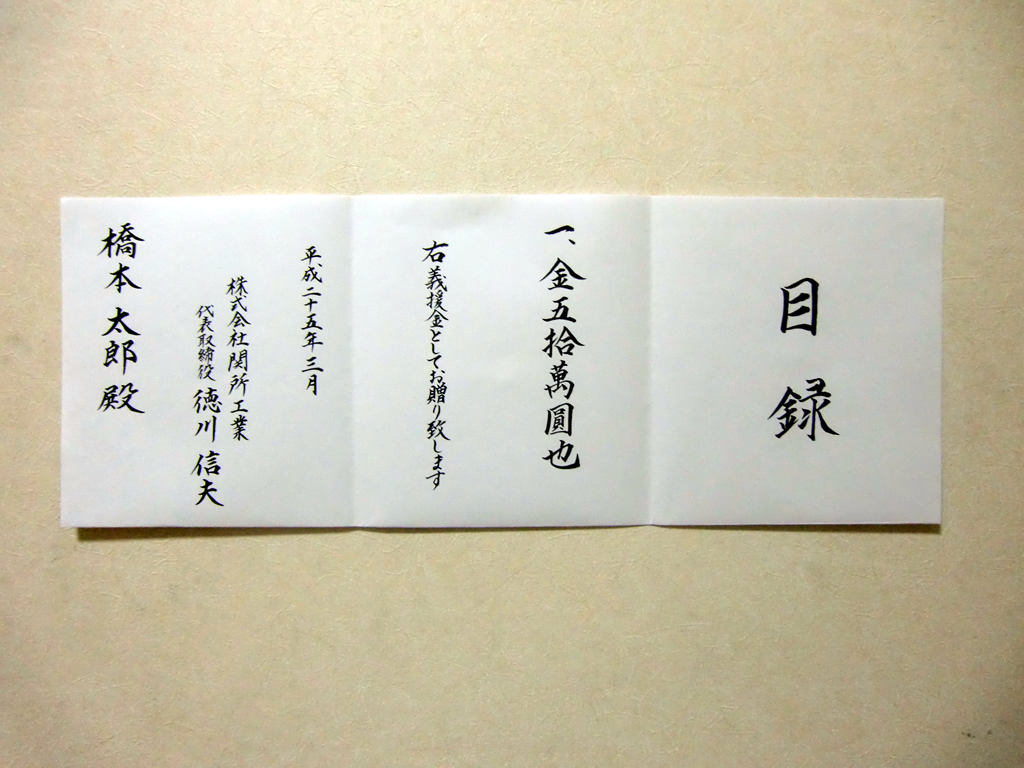 目録
一、金五拾萬圓也
右義援金としてお贈り致します
平成二十五年三月
株式会社関所工業
代表取締役 徳川信夫
橋本太郎殿